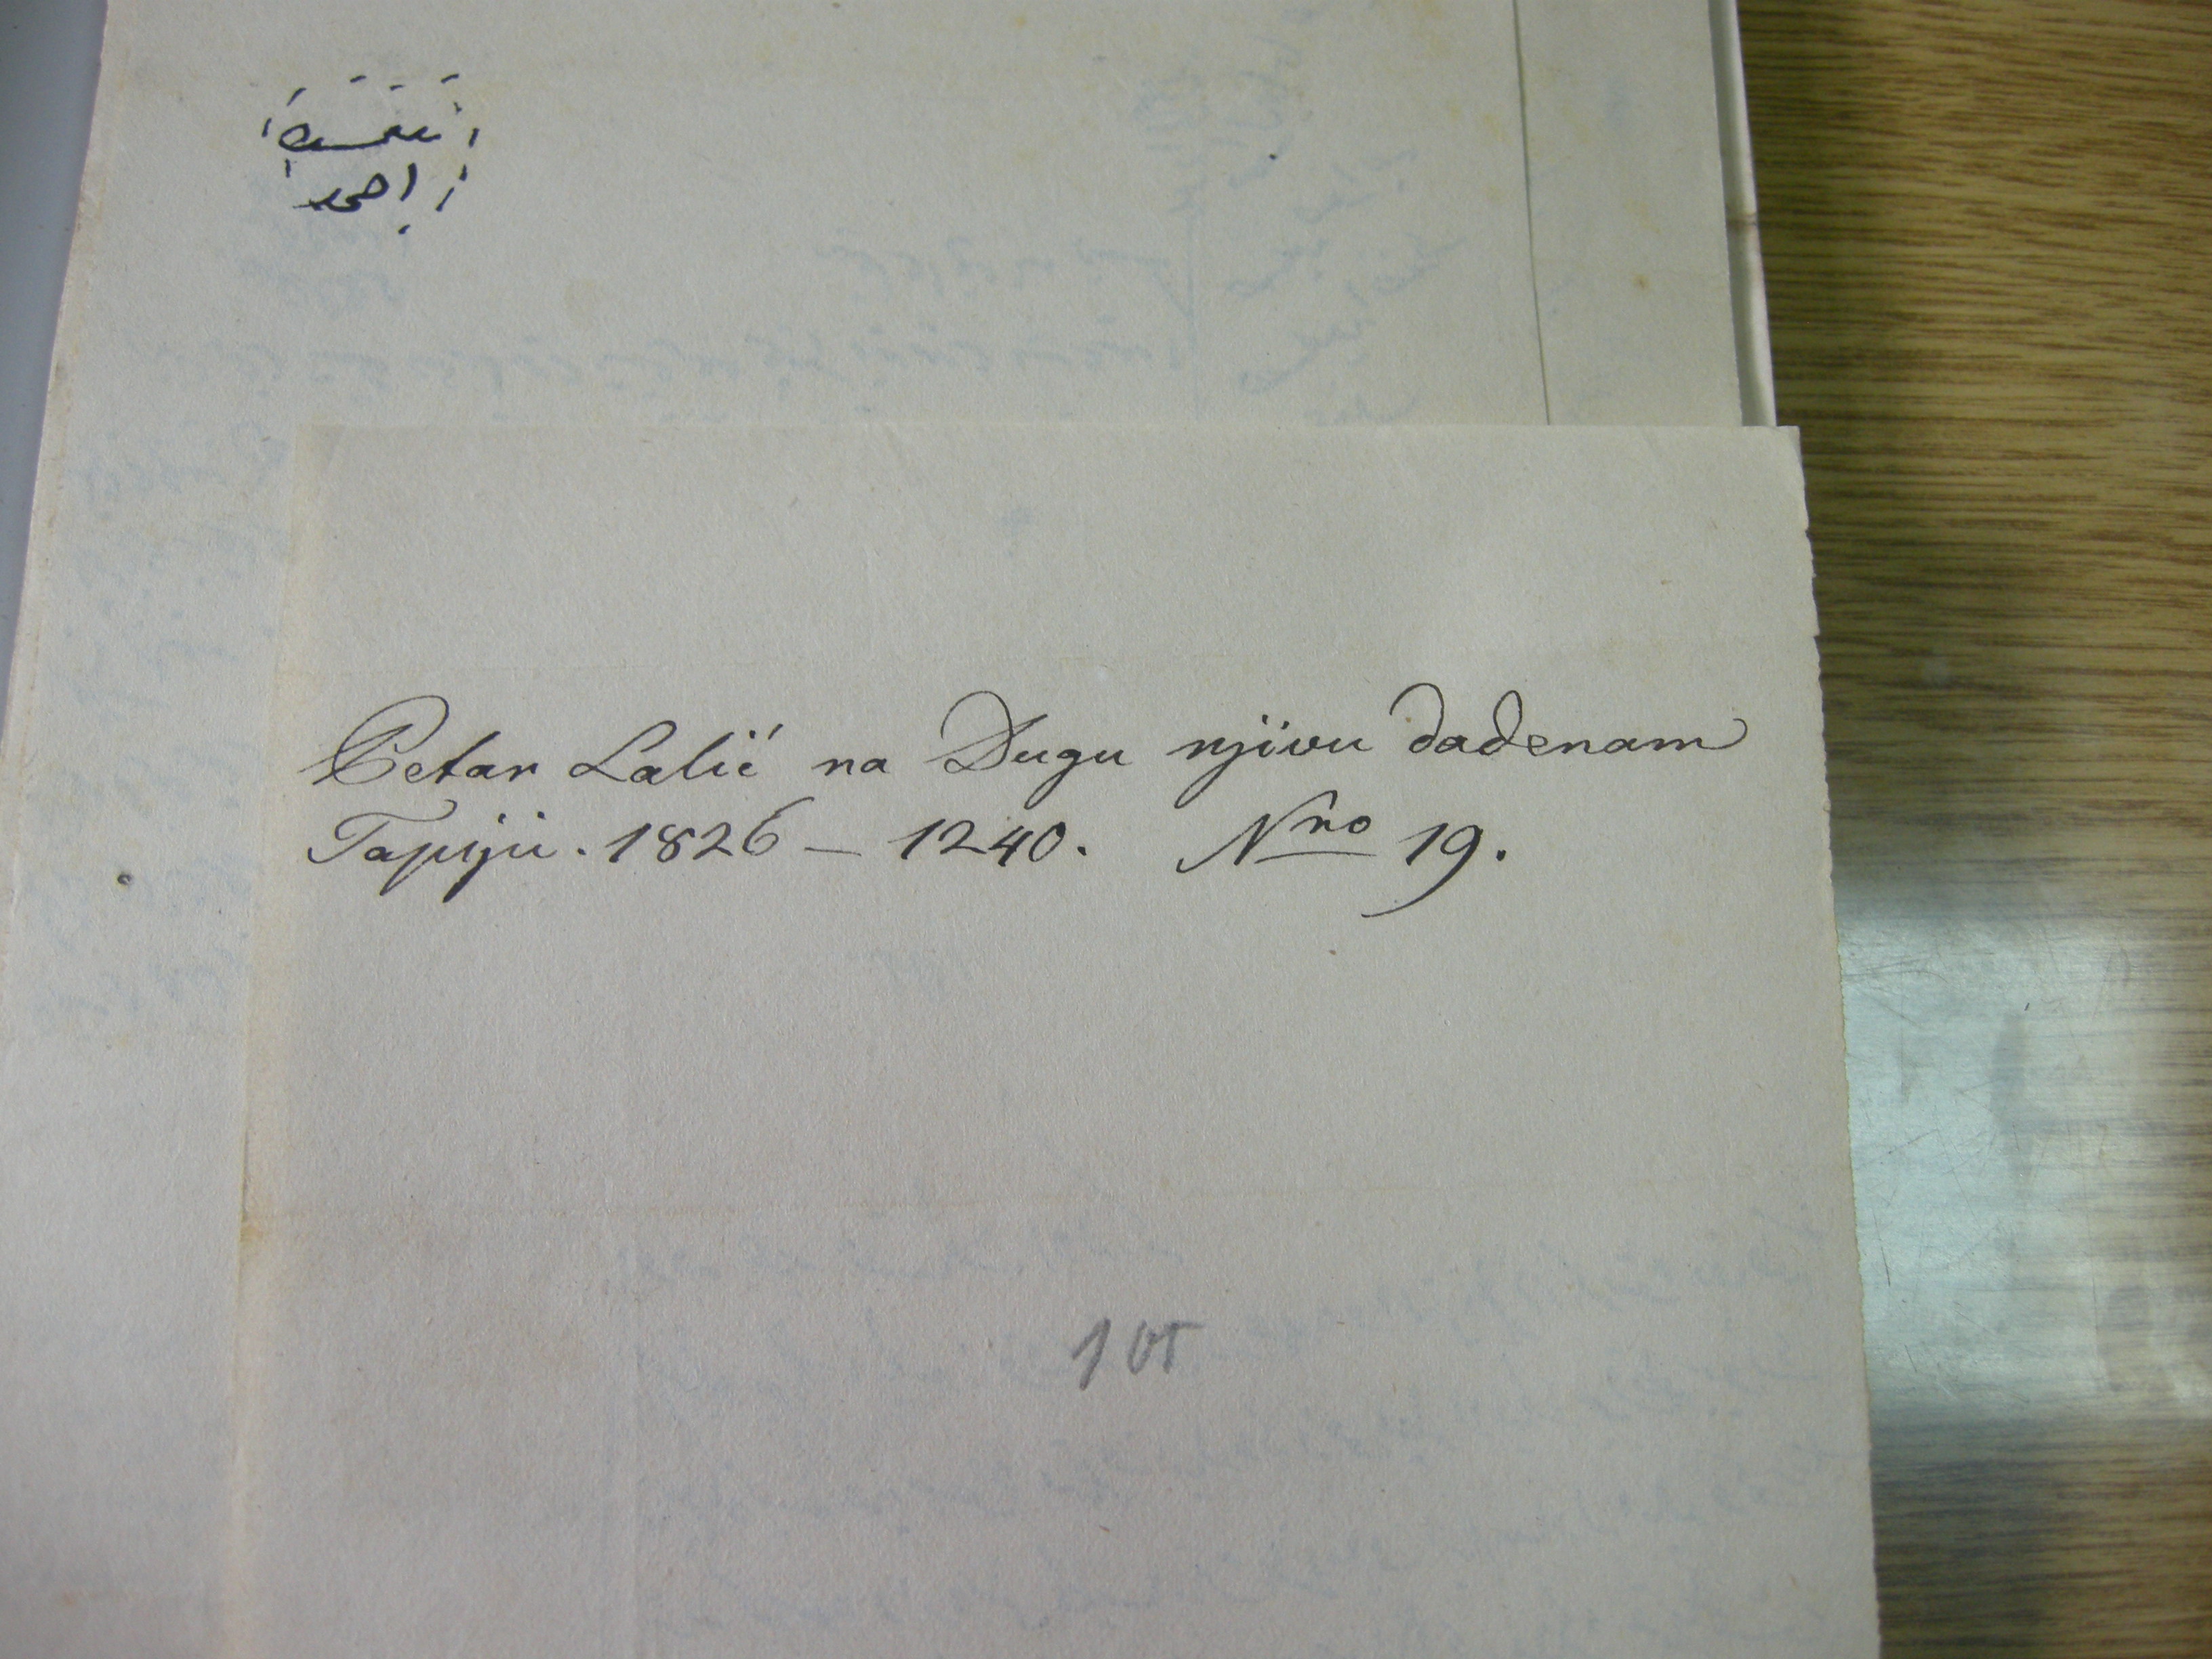 احمد
Petar Lalić na Dugu njivu dade nam
Tapiju. 1826 — 1240. Nro 19.
105